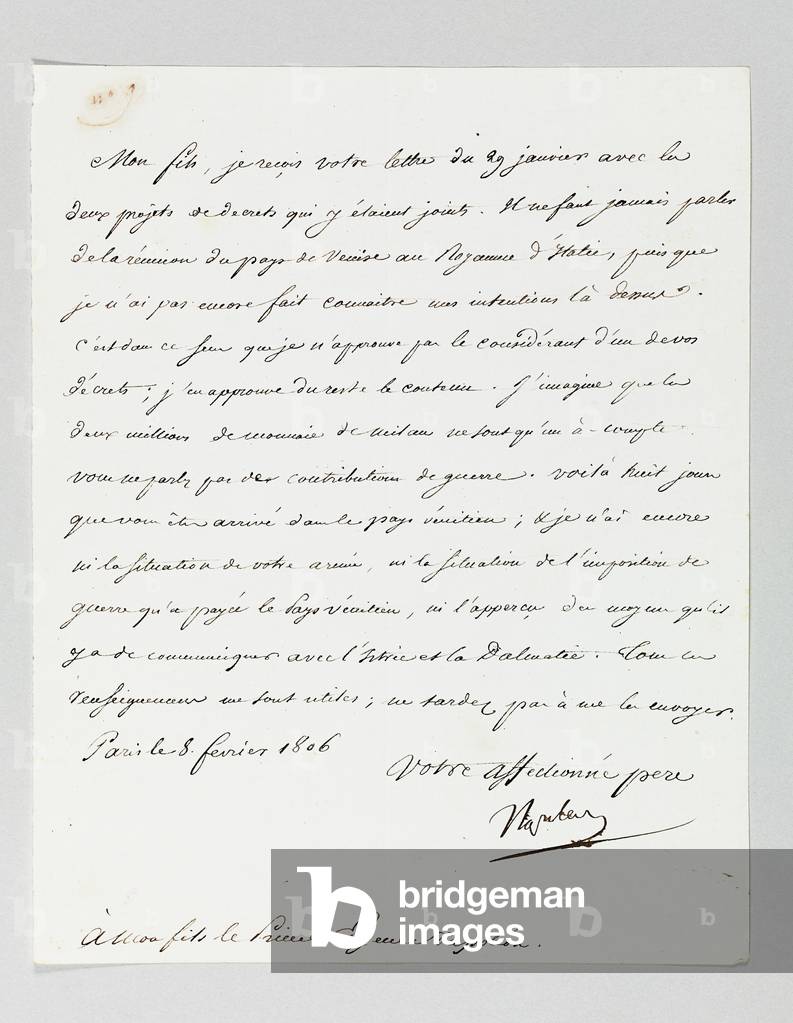 nº 9
Mon fils, je reçois votre lettre du 29 janvier avec les
deux projets de decrets qui y étaient joints. Il ne faut jamais parler
de la réunion du pays de Venise au Royaume d'Italie, puis que
je n'ai pas encore fait connaitre mes intentions là dessus.
c'est dans ce sens que je n'approuve pas le considérant d'un de vos
décrets; j'en approuve du reste le contenu. J'imagine que les
deux millions de monnaie de milan ne sont qu'un à-compte.
vous ne parlez pas des contributions de guerre. voilà huit jours
que vous êtes arrivé dans le pays vénitien; & je n'ai encore
ni la situation de votre armée, ni la situation de l'imposition de
guerre qu'a payée le Pays Vénitien, ni l'apperçu des moyens qu'il
y a de communiquer avec l'Istrie et la Dalmatie. Tous ces
renseignemens me sont utiles; ne tardez pas à me les envoyer.
Paris le 8. février 1806
Votre affectionné pere
Napoleon
à Mon fils le Prince
bridgeman
images